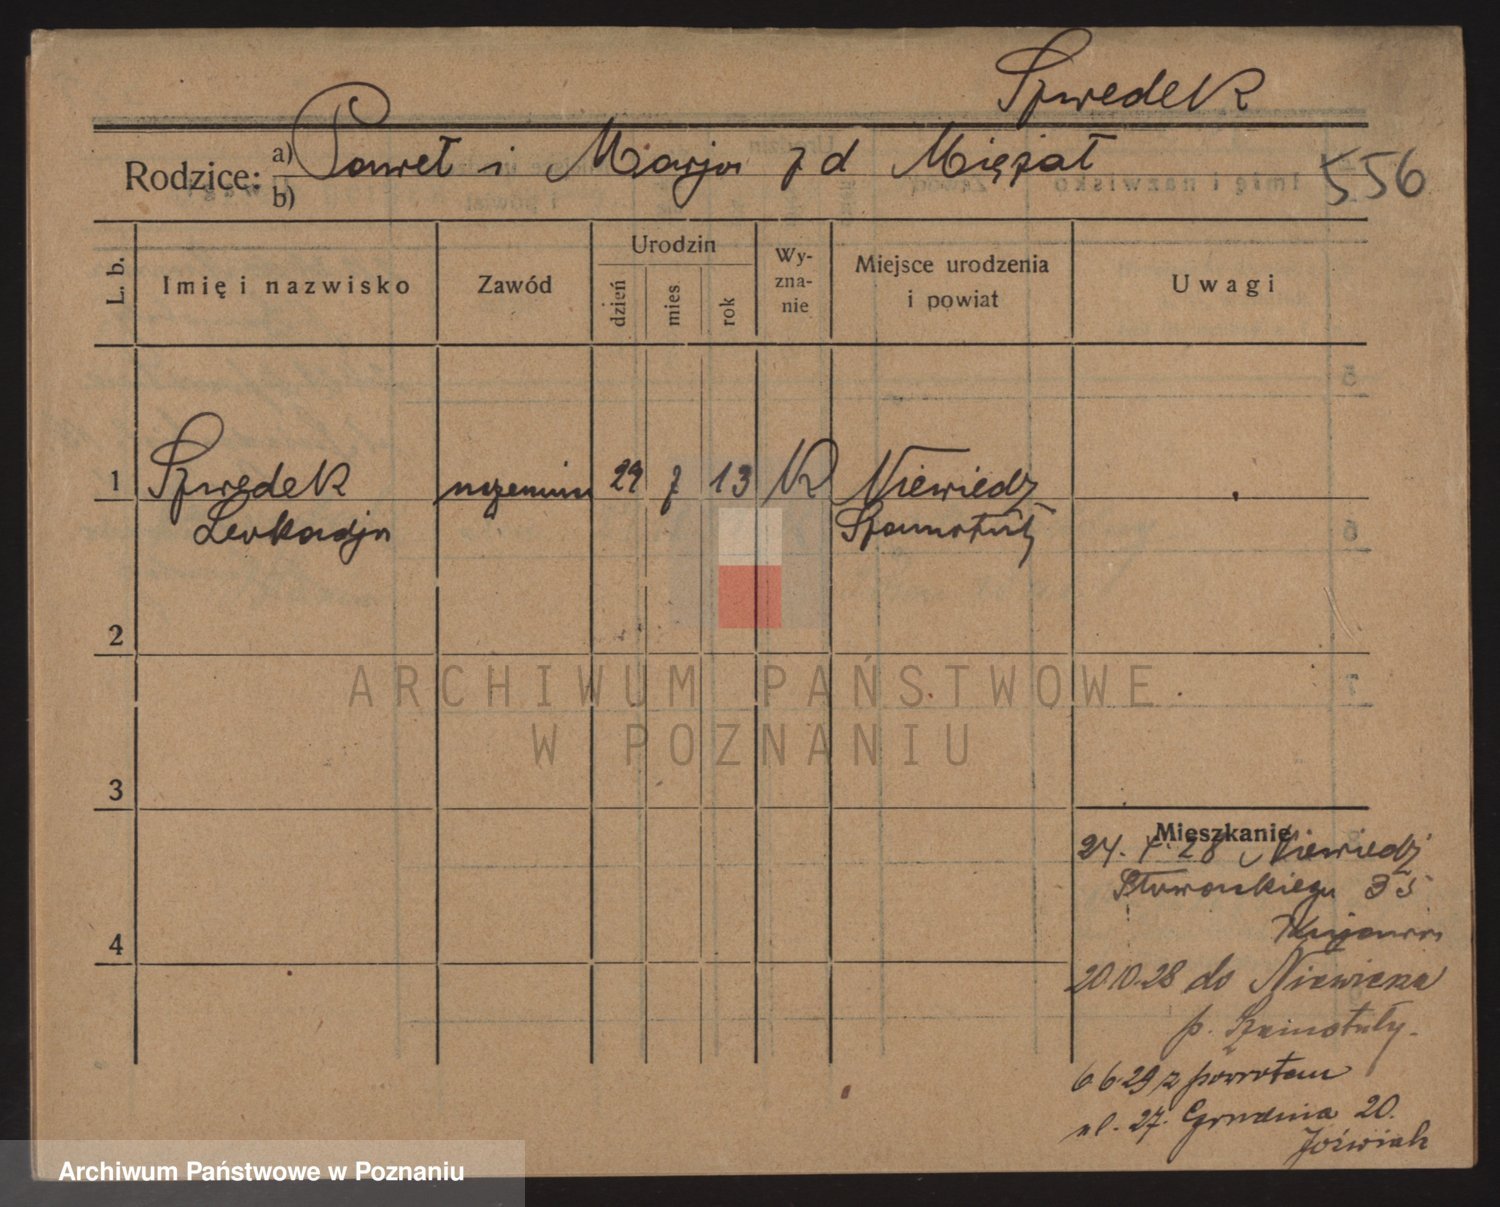 Szwedek
Rodzice: a) Paweł i Marja z d Miężał
b)
556
L. b.
Imię i nazwisko
Zawód
Urodzin
dzień
mies
rok
Wy-
zna-
nie
Miejsce urodzenia
i powiat
Uwagi
1 Szwedek 29 7 13 K Niewiedz
Leokadja Szamotuły
2
3
4
Mieszkanie
28 Niewiedz
35
20.10.28 do Niewierza
p. Szamotuły.
6.6.29 z powrotem
ul. 27. Grudnia 20.
Jóźwiak
ARCHIWUM PAŃSTWOWE
W POZNANIU
Archiwum Państwowe w Poznaniu